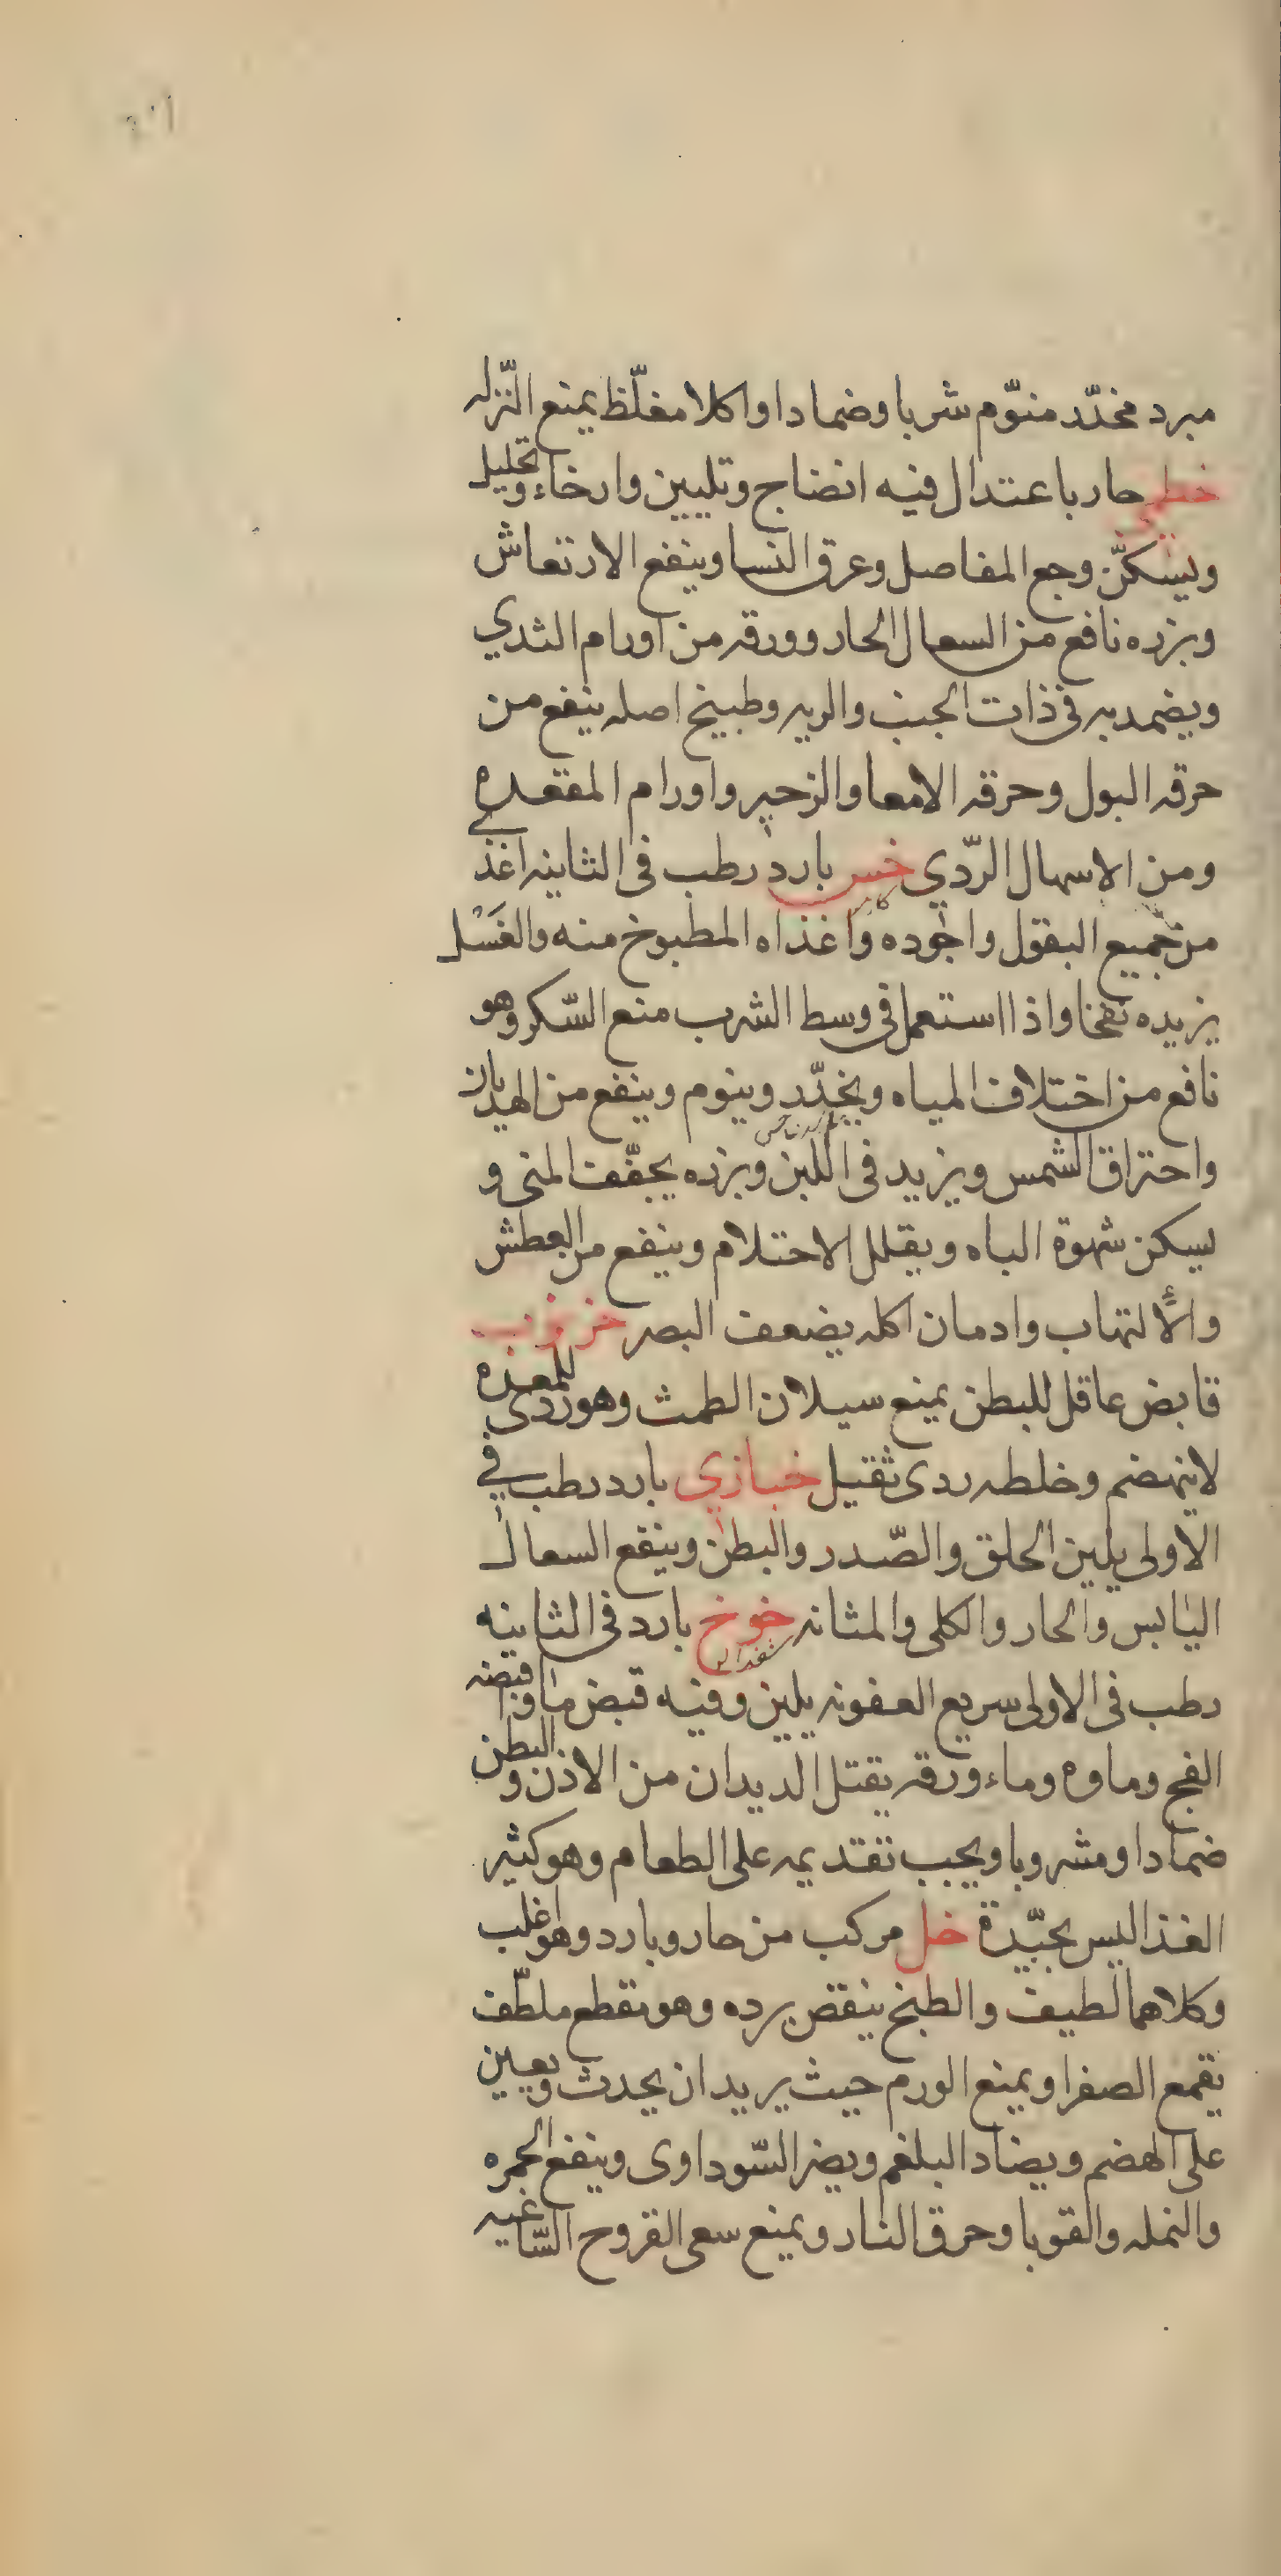 مبرد مخدّد منوّم شربا وضمادا واكلا مغلّظ يمنع النّزله
خطمي حار باعتدال فيه انضاج وتليين وارخاء وتحليل
ويسكنّ وجع المفاصل وعرق النسا وينفع الارتعاش
وبزره نافع من السعال الحار وورقه من اورام الثدي
ويضمد به فى ذات الجنب والريه وطبيخ اصله ينفع من
حرقه البول وحرقه الامعا والزحير واورام المقعده
ومن الاسهال الرّدي خس بارد رطب فى الثانيه اغذى
من جميع البقول واجوده واغذاه المطبوخ منه والغَسْل
يزيده نفخا واذا استعمل فى وسط الشرب منع السّكر وهو
نافع من اختلاف المياه ويخدّر وينوم وينفع من الهذيان
واحتراق الشمس ويزيد فى اللبن وبزره يجفّف المنى و
يسكن شهوة الباه ويقلل الاحتلام وينفع من العطش
والالتهاب وادمان اكله يضعف البصر خرنوب
قابض عاقل للبطن يمنع سيلان الطمث وهو ردى للمعده
لا ينهضم وخلطه ردى ثقيل خبازي بارد رطب في
الاولى يلين الحلق والصّدر والبطن وينفع السعال
اليابس والحار والكلى والمثانه خوخ بارد فى الثانيه
رطب فى الاولى سريع العفونه يلين وفيه قبض ما واقبضه
الفج وماوه وماء ورقه يقتل الديدان من الاذن والبطن
ضمادا ومشروبا ويجب تقديمه على الطعام وهو كثير
الغذا ليس بجيّدة خل مركب من حار وبارد وهو اغلب
وكلاهما لطيف والطبخ ينقص برده وهو مقطع ملطّف
يقمع الصفرا ويمنع الورم حيث يريد ان يحدث ويعين
على الهضم ويضاد البلغم ويضر السّوداوى وينفع الجمره
والنمله والقوبا وحرق النار ويمنع سعى القروح السّاعيه